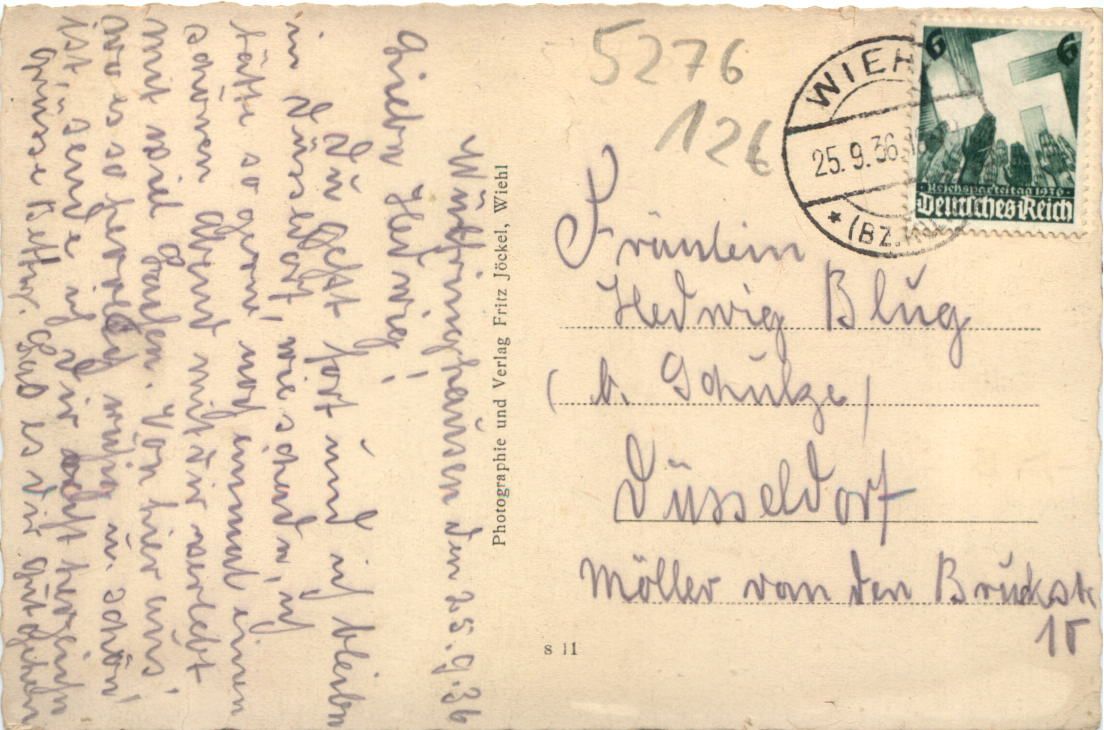 5276
126
WIEHL
25.9.36
(BZ.K
6
6
Reichsparteitag 1936
Deutsches Reich
Fräulein
Hedwig Blug
(b. Schulze)
Düsseldorf
Möller van den Bruckstr
15
s 11
Photographie und Verlag Fritz Jöckel, Wiehl
den 25.9.36
Liebe Hedwig!
Du gehst fort und ich bleibe
in Düsseldorf, wie schade, ich
hätte so gerne noch einmal einen
schönen Abend mit Dir verlebt
mit viel Lachen. Von hier aus,
wo es so herrlich ruhig u. schön
ist, sende ich Dir recht herzliche
Grüsse